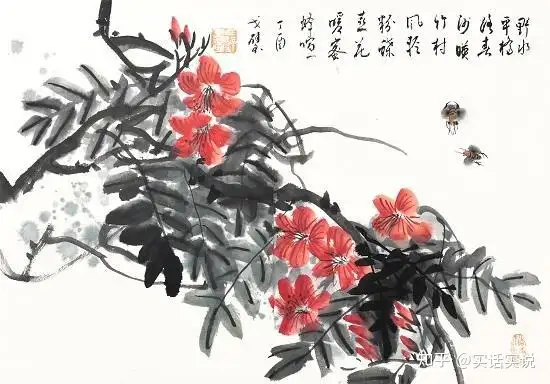 野水
平橋
路春
沙暎
竹村
风轻
粉蝶
喜花
暖蜜
蜂喧
丁酉
知乎 @实话实说